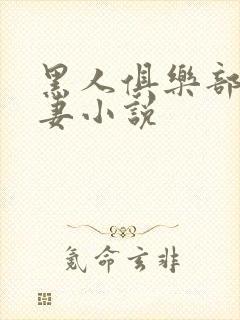 黑人俱樂部
妻小說
氪命玄非